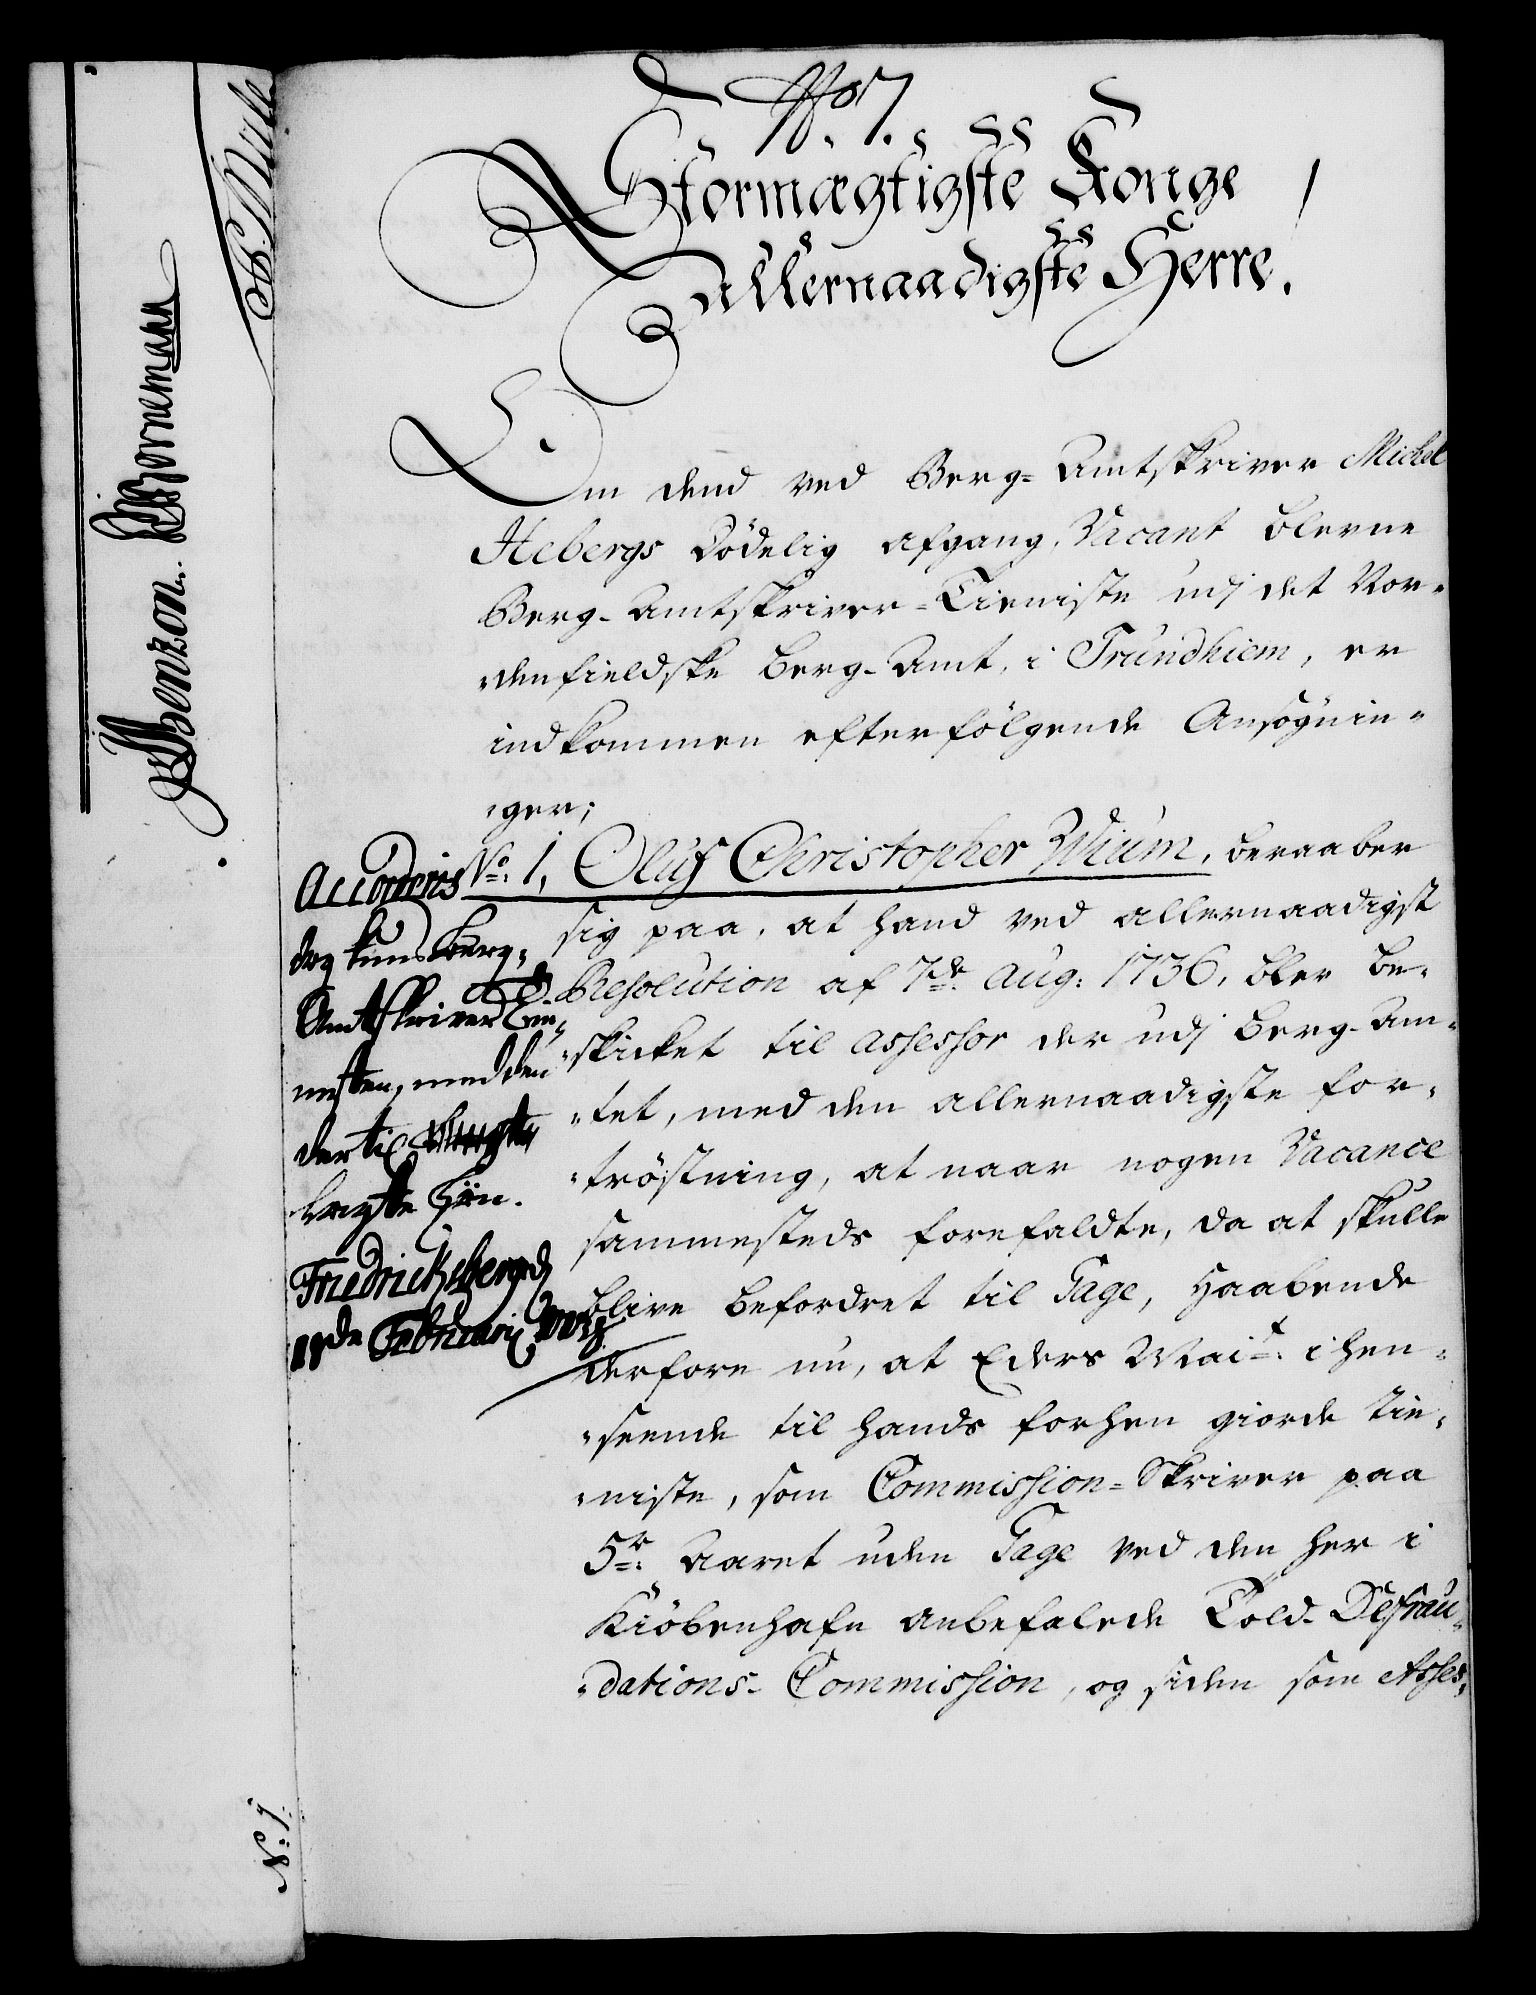 No 7.
Stormægtigste Konge
Allernaadigste Herre.
Om dend ved Berg-Amtskriver Michel
Hebergs Dödelig afgang, Vacant blevne
Berg-Amtskriver-Tieniste udj det Nor-
denfieldske Berg-Amt, i Trundhiem, er
indkommen efterfölgende Ansögnin-
ger;
No: 1, Oluf Christopher Wium, beraaber
sig paa, at hand ved allernaadigst
Resolution af 7de Aug: 1736, blev be-
skicket til Assessor der udj Berg-Am-
tet, med den allernaadigste for-
tröstning, at naar nogen Vacance
sammesteds forefaldte, da at skulle
blive befordret til Gage, haabende
derfore nu, at Eders Mait: i hen-
seende til hands forhen giorde Tie-
niste, som Commission-Skriver paa
5te Aaret uden Gage ved den her i
Kiöbenhafn anbefalede Told-Defrau-
dations-Commission, og siden som Asses-
Accorderis
dog kuns Berg-
Amtskriver Tie-
nesten, med den
der til
lagte Gın.
Friedrichsberg d
Februarij
Benzon. Bornemann
N: 1.